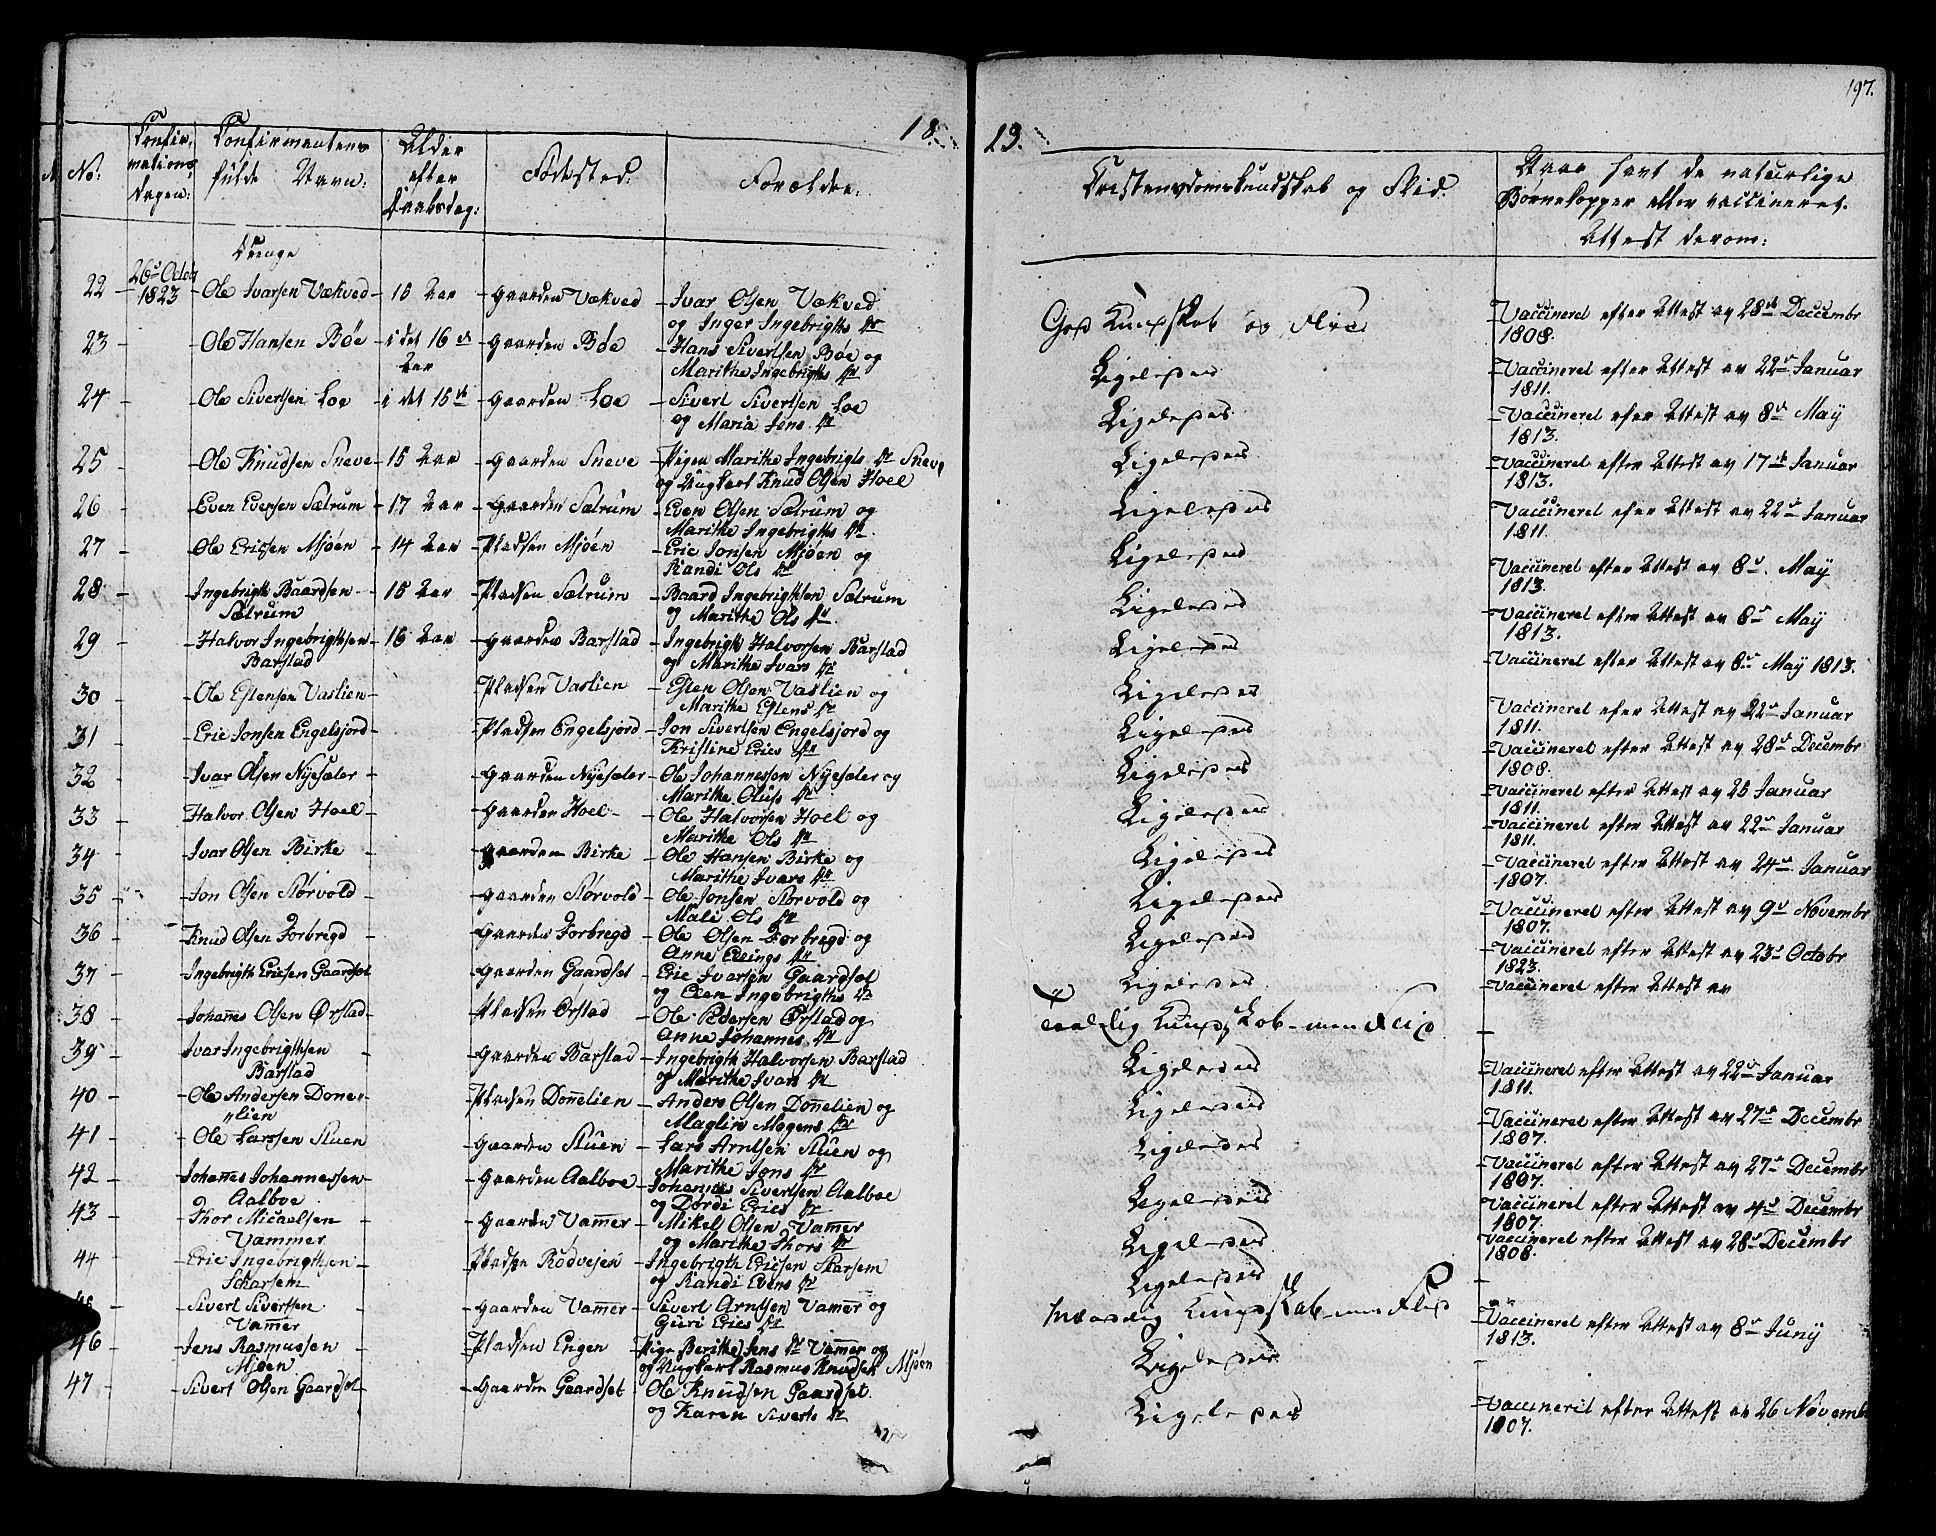 197.
18 23.
No: Confirmations Dagen: Confirmantens fulde Navn: Alder efter Daabsdag: Fødested: Forældre: Kristendomskundskab og Flid. Naar havt de naturlige Børnekopper eller vaccineret. Attest derom:
Drenge
22 – 26de Octobr 1823 – Ole Ivarsen Vækved – 15 Aar – Gaarden Vækved – Ivar Olsen Vækved og Inger Ingebrigts Dr – God Kundskab og Flid – Vaccineret efter Attest av 28de Decembr 1808.
23 – Ole Hansen Bøe – i det 16de Aar – Gaarden Bøe – Hans Sivertsen Bøe og Marithe Ingebrigts Dr – Ligeledes – Vaccineret efter Attest av 22de Januar 1811.
24 – Ole Sivertsen Loe – i det 15de – Gaarden Loe – Sivert Sivertsen Loe og Maria Jens Dr – Ligeledes – Vaccineret efter Attest av 8de May 1813.
25 – Ole Knudsen Sneve – 15 Aar – Gaarden Sneve – Pigen Marithe Ingebrigts Dr Sneve og Ungkarl Knud Olsen Hoel – Ligeledes – Vaccineret efter Attest av 17de Januar 1813.
26 – Even Evensen Sætrum – 17 Aar – Gaarden Sætrum – Even Olsen Sætrum og Marithe Ingebrigts Dr – Ligeledes – Vaccineret efter Attest av 22de Januar 1811.
27 – Ole Ericsen Mjøen – 14 Aar – Pladsen Mjøen – Eric Jonsen Mjøen og Randi Ols Dr – Ligeledes – Vaccineret efter Attest av 8de May 1813.
28 – Ingebrigt Baardsen Sætrum – 15 Aar – Pladsen Sætrum – Baard Ingebrigtsen Sætrum og Marithe Ols Dr – Ligeledes – Vaccineret efter Attest av 6de May 1813.
29 – Halvor Ingebrigtsen Barstad – 16 Aar – Gaarden Barstad – Ingebrigt Halvorsen Barstad og Marithe Ivars Dr – Ligeledes – Vaccineret efter Attest av 8de May 1813.
30 – Ole Estensen Vaslien – Pladsen Vaslien – Esten Olsen Vaslien og Marithe Estens Dr – Ligeledes – Vaccineret efter Attest av 22de Januar 1811.
31 – Eric Jonsen Engelsjord – Pladsen Engelsjord – Jon Sivertsen Engelsjord og Kristine Erics Dr – Ligeledes – Vaccineret efter Attest av 28de Decembr 1808.
32 – Ivar Olsen Nyesæter – Gaarden Nyesæter – Ole Johannessen Nyesæter og Marithe Olufs Dr – Ligeledes – Vaccineret efter Attest av 25 Januar 1811.
33 – Halvor Olsen Hoel – Gaarden Hoel – Ole Halvorsen Hoel og Marithe Ols Dr – Ligeledes – Vaccineret efter Attest av 22de Januar 1811.
34 – Ivar Olsen Birke – Gaarden Birke – Ole Hansen Birke og Marithe Ivars Dr – Ligeledes – Vaccineret efter Attest av 24de Januar 1807.
35 – Jon Olsen Størvold – Gaarden Størvold – Ole Jonsen Størvold og Mali Ols Dr – Ligeledes – Vaccineret efter Attest av 9de Novembr 1807.
36 – Knud Olsen Forbregd – Gaarden Forbregd – Ole Olsen Forbregd og Anne Elings Dr – Ligeledes – Vaccineret efter Attest av 23de Octobr 1823.
37 – Ingebrigt Ericsen Gaardset – Gaarden Gaardset – Eric Ivarsen Gaardset og Elen Ingebrigts Dr – Ligeledes – Vaccineret efter Attest av
38 – Johanes Olsen Ørstad – Pladsen Ørstad – Ole Pedersen Ørstad og Anne Johannes Dr – Taalelig Kundskab – men Flid –
39 – Ivar Ingebrigtsen Barstad – Gaarden Barstad – Ingebrigt Halvorsen Barstad og Marithe Ivars Dr – Ligeledes – Vaccineret efter Attest av 22de Januar 1811.
40 – Ole Andersen Doner"lien – Pladsen Donnelien – Anders Olsen Donnelien og Maglin Mogens Dr – Ligeledes – Vaccineret efter Attest av 27de Decembr 1807.
41 – Ole Larssen Stuen – Gaarden Stuen – Lars Arntsen Stuen og Marithe Jons Dr – Ligeledes – Vaccineret efter Attest av 27de Decembr 1807.
42 – Johanes Johannessen Aalboe – Gaarden Aalboe – Johannes Sivertsen Aalboe og Dordi Erics Dr – Ligeledes – Vaccineret efter Attest av 4de Decembr 1807.
43 – Thor Micaelsen Vammer – Gaarden Vammer – Mikel Olsen Vammer og Marithe Thors Dr – Ligeledes – Vaccineret efter Attest av 28de Decembr 1808.
44 – Eric Ingebrigtsen Skarsem – Pladsen Rodvejen – Ingebrigth Ericsen Skarsem og Randi Evens Dr – Ligeledes –
45 – Sivert Sivertsen Vammer – Gaarden Vammer – Sivert Arntsen Vammer og Guri Erics Dr – Kundskab – men Flid – Vaccineret efter Attest av 8de Juny 1813.
46 – Jens Rasmussen Mjøen – Pladsen Engen – Pige Berithe Jens Dr Vammer og og Ungkarl Rasmus Knudsen Mjøen – Ligeledes –
47 – Sivert Olsen Gaardset – Gaarden Gaardset – Ole Knudsen Gaardset og Karen Siverts Dr – Ligeledes – Vaccineret efter Attest av 26 Novembr 1807.